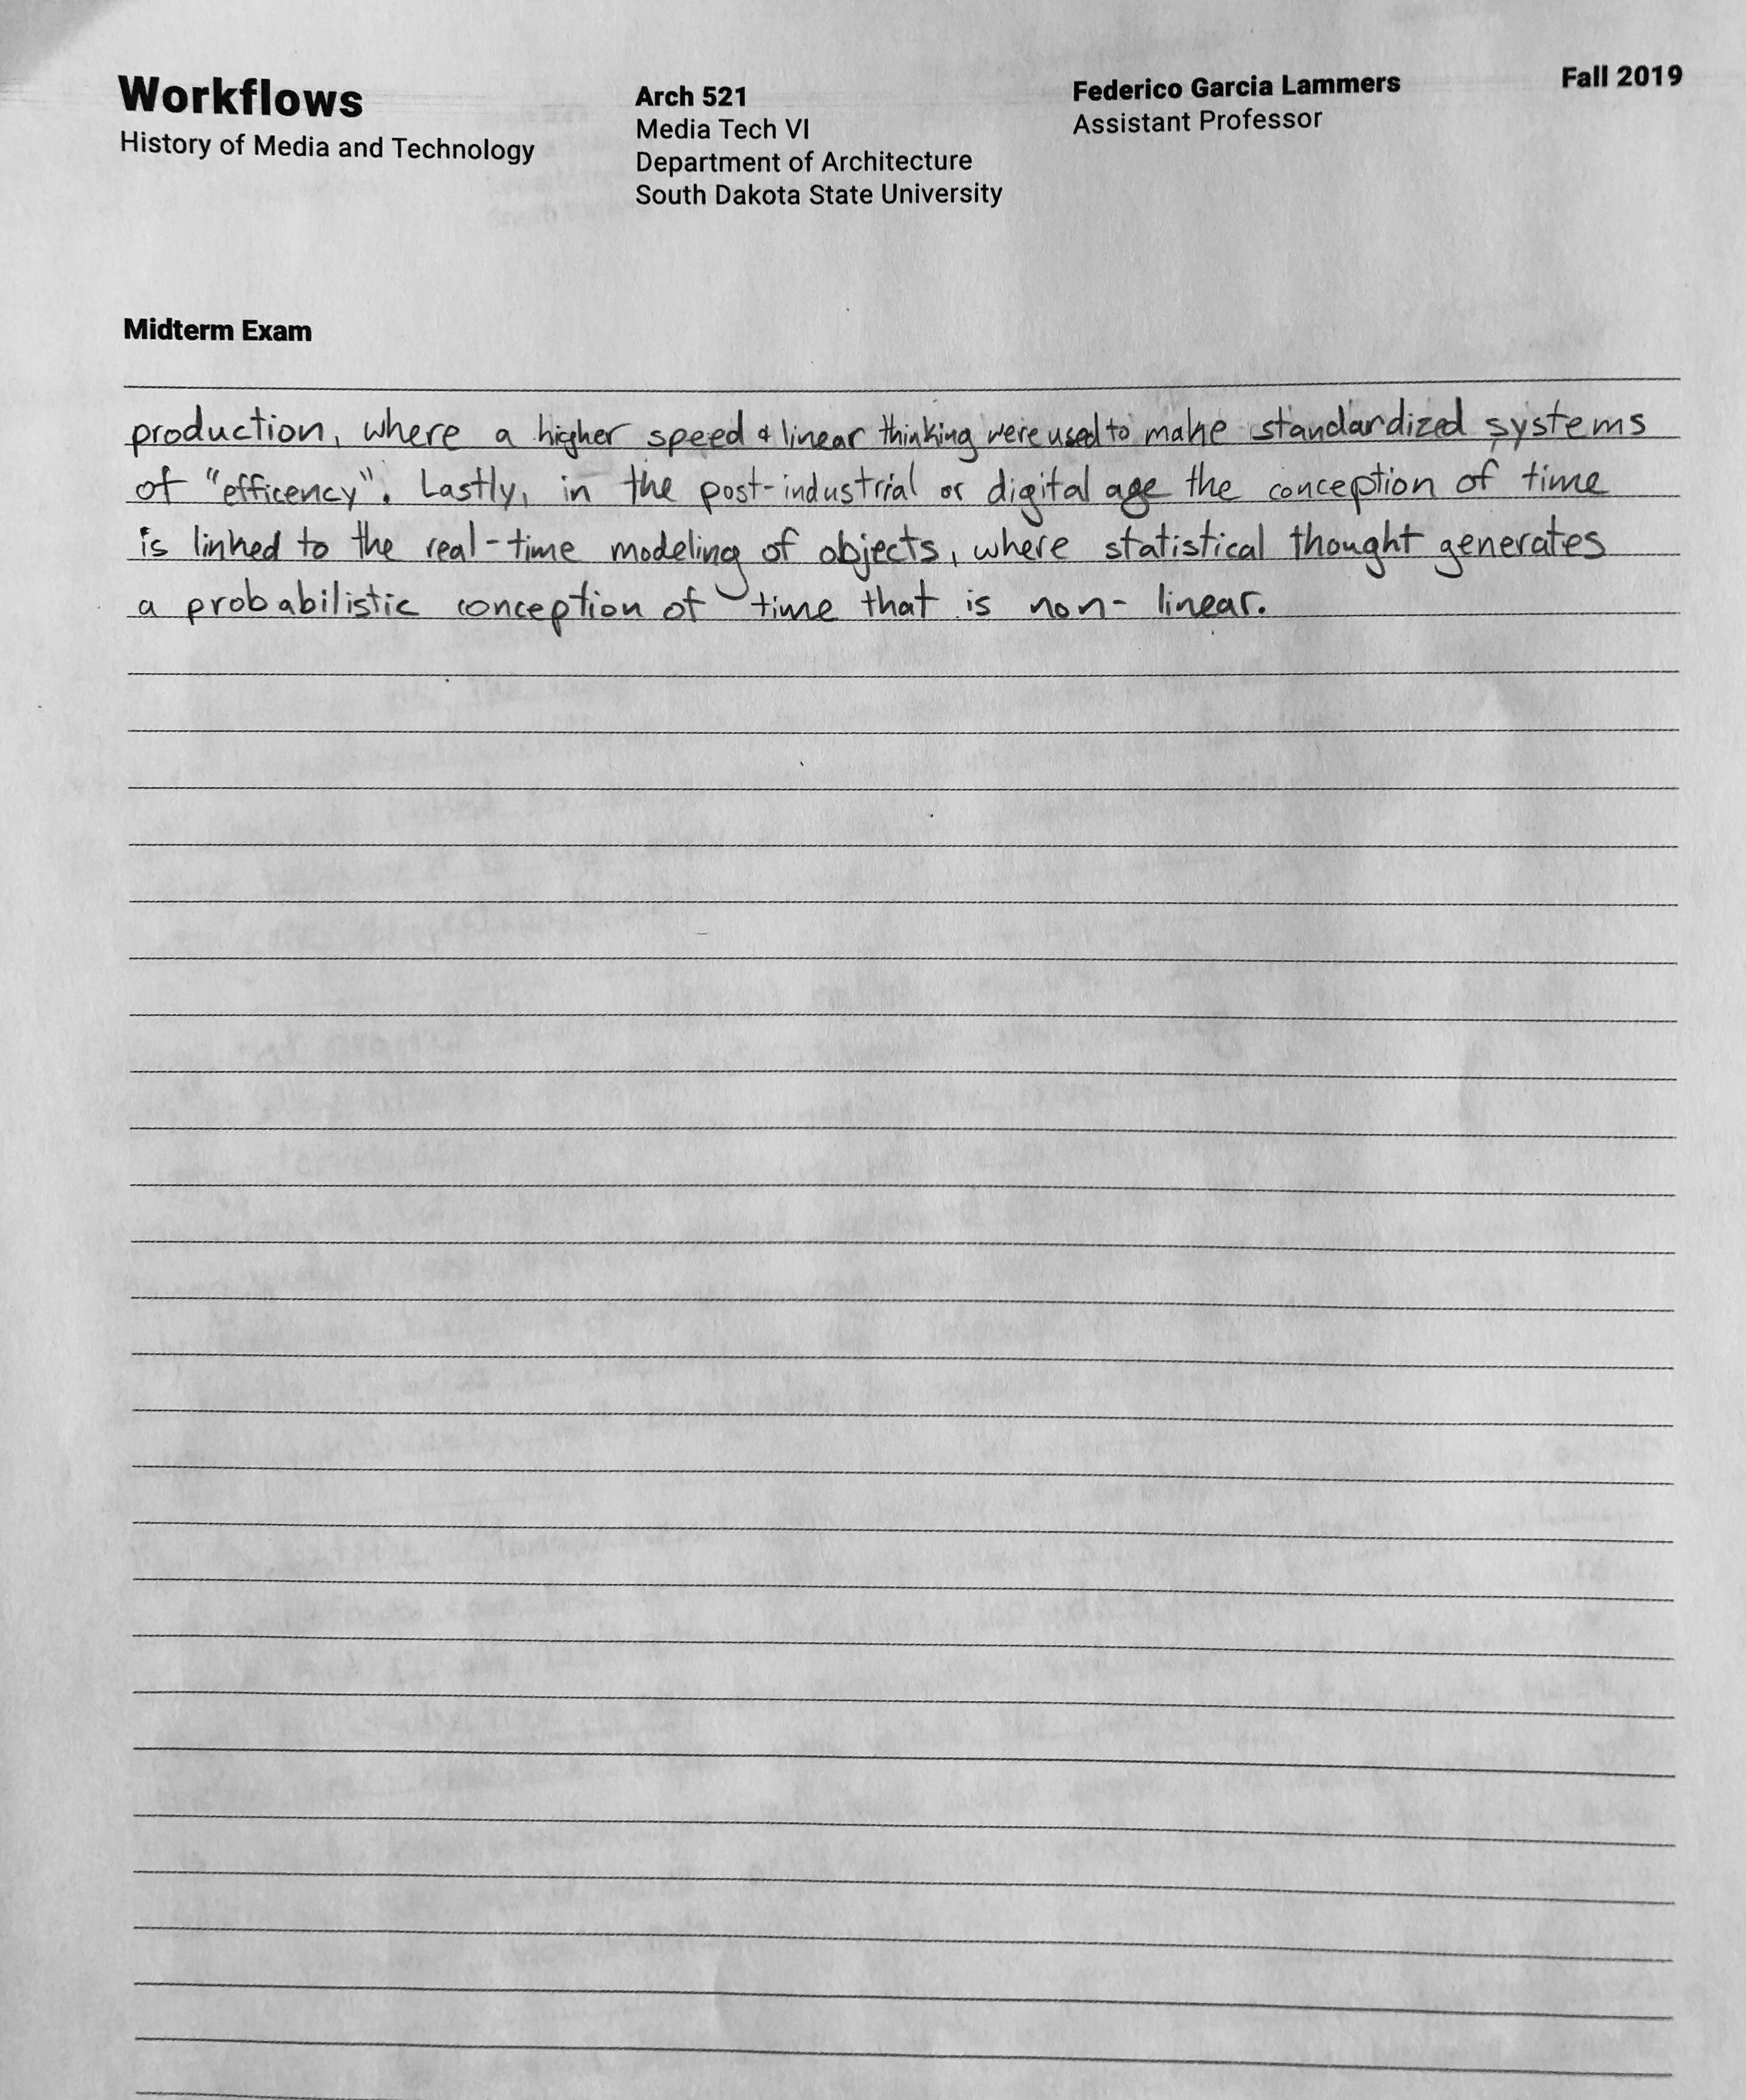 Workflows
History of Media and Technology
Arch 521
Media Tech VI
Department of Architecture
South Dakota State University
Federico Garcia Lammers
Assistant Professor
Fall 2019
Midterm Exam
production, where a higher speed & linear thinking were used to make standardized systems
of "efficency". Lastly, in the post-industrial or digital age the conception of time
is linked to the real-time modeling of objects, where statistical thought generates
a probabilistic conception of time that is non-linear.